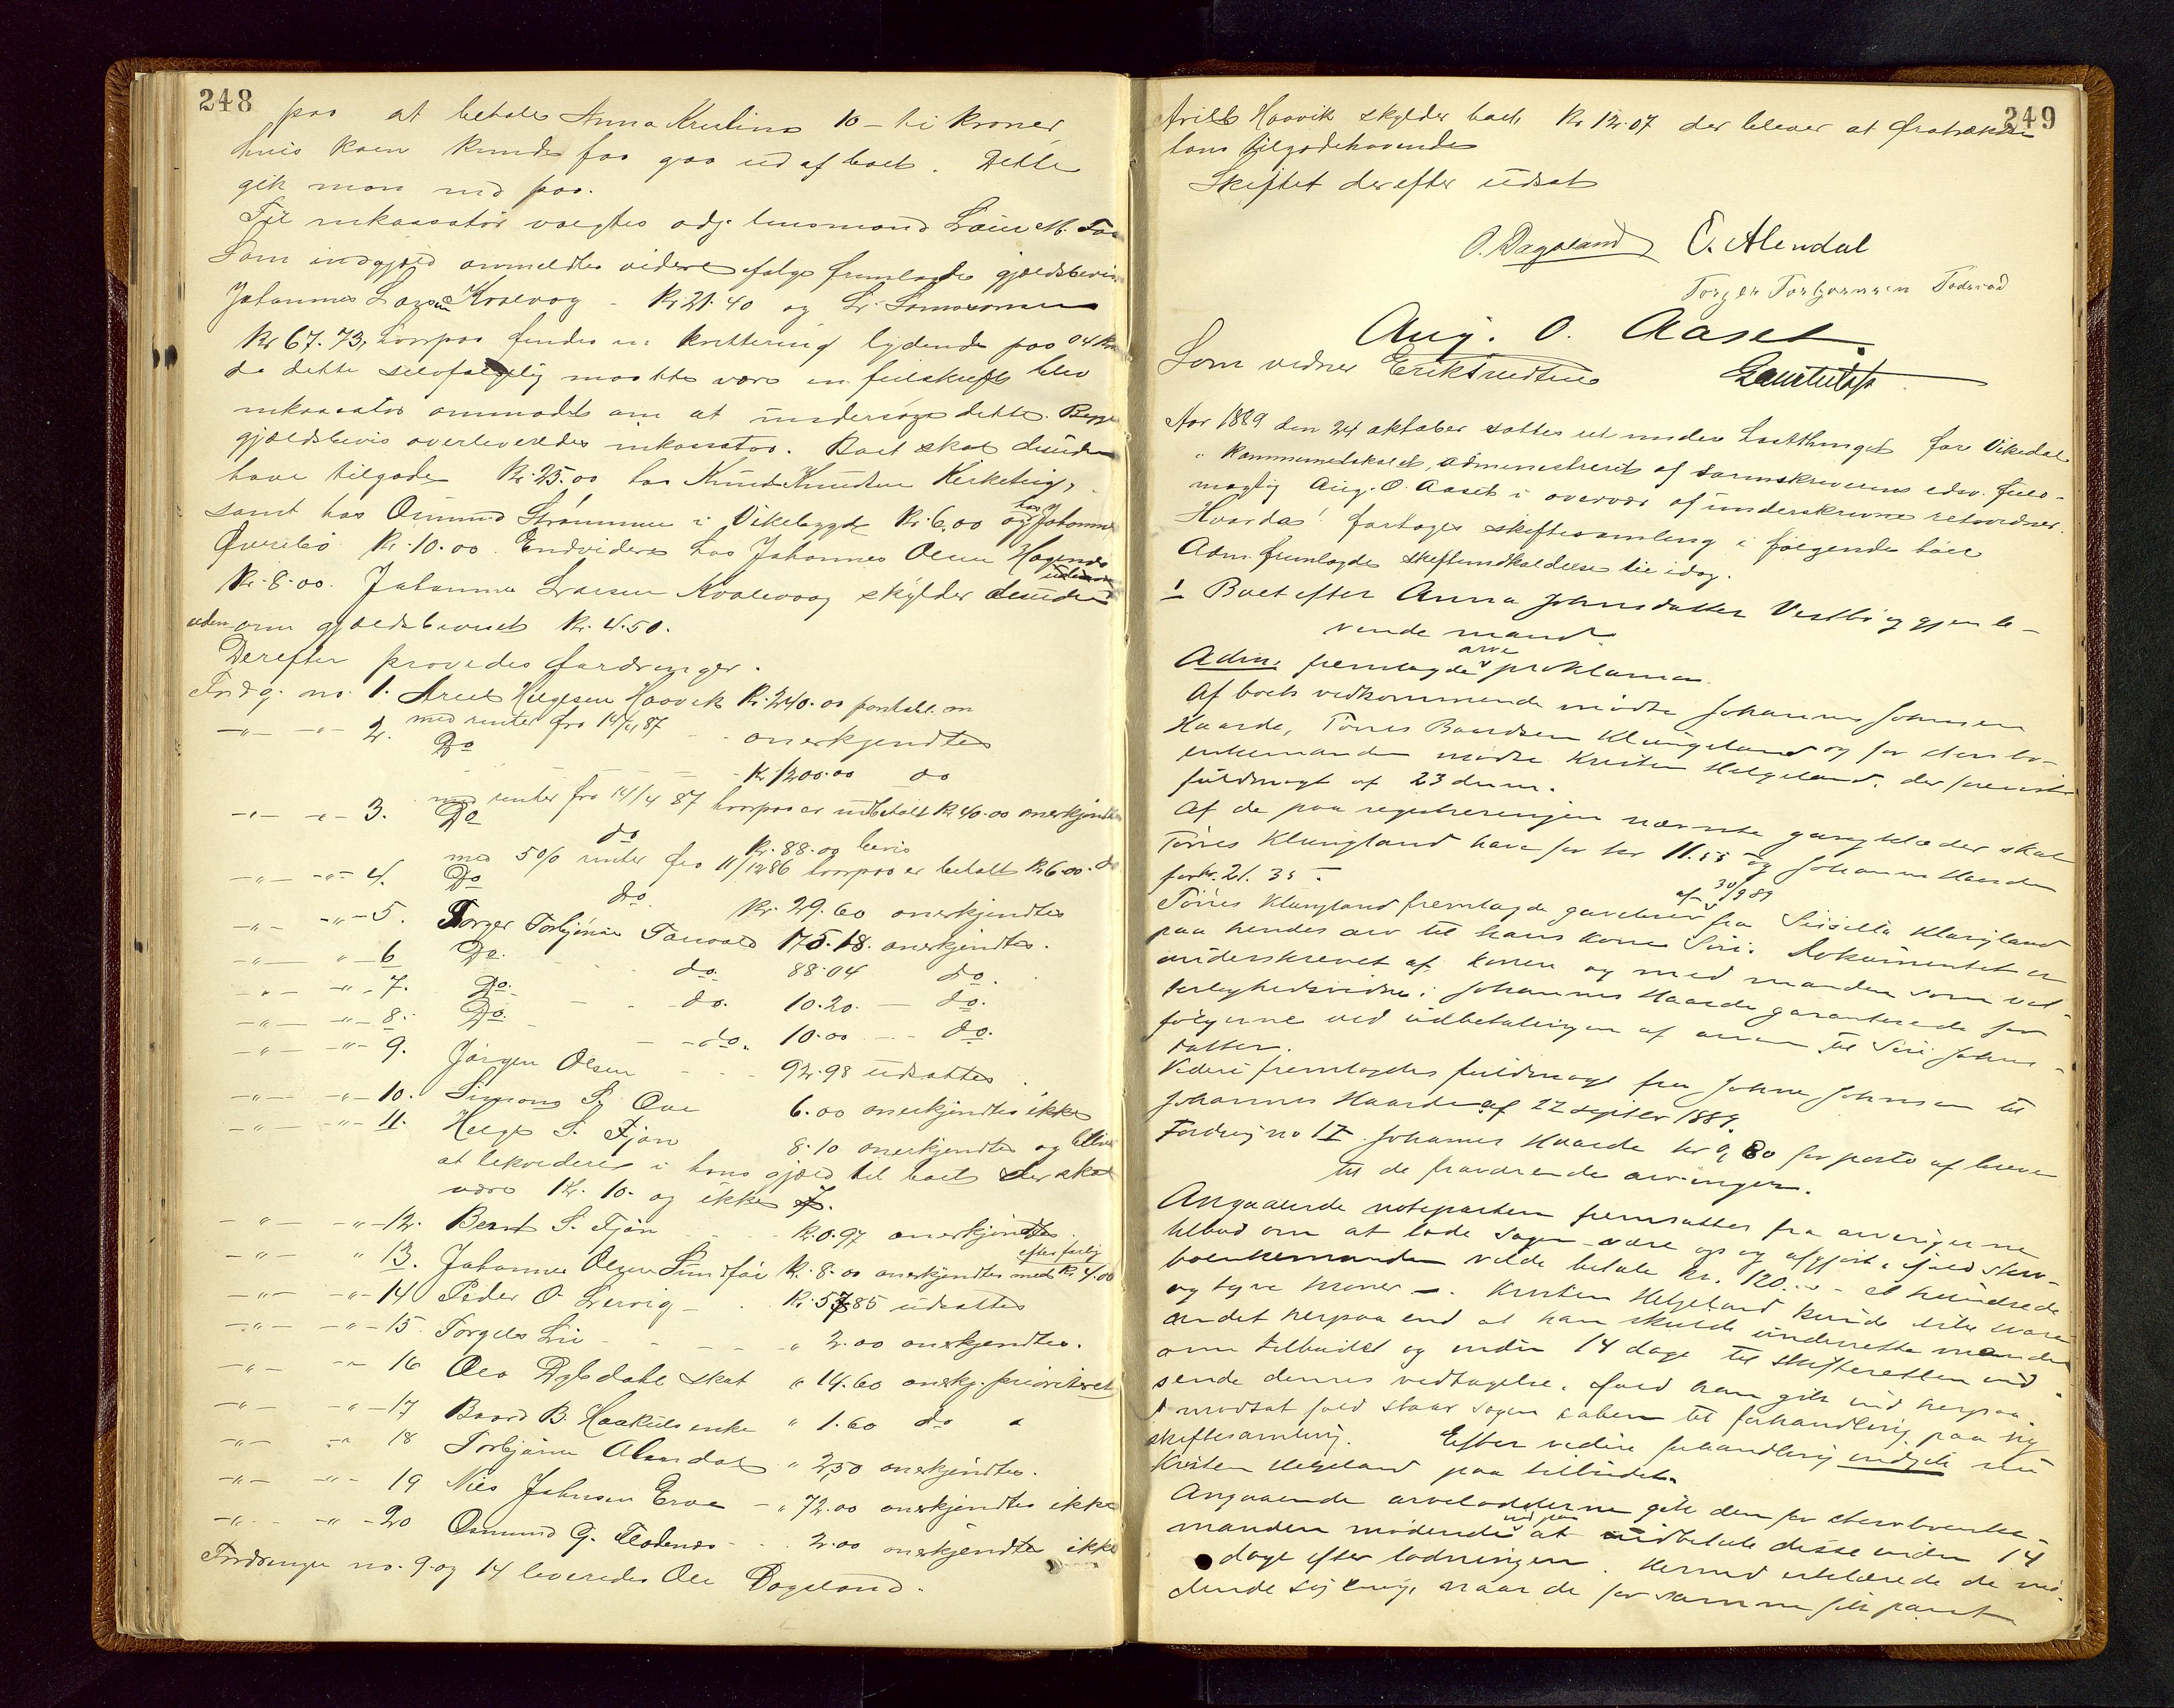 248
paa at betale Anna Kristina 10 - ti kroner
hvis koen kunde faa gaa ud af boet. Dette
gik man ind paa.
Til inkassator valgtes adj. lensmand Lars M.
Som indgjæld anmeldtes videre ifølge fremlagte gjældsbevis
Johannes Larsen Kvalevaag - Kr 21.40 og
Kr 67.73, hvorpaa findes en kvittering lydende paa 04 Kr
da dette selvfølgelig maatte være en feilskrift blev
inkassator anmodet om at undersøge dette. Begge
gjældsbevis overleveredes inkassator. Boet skal desuden
have tilgode Kr. 25.00 hos Knud Knudsen Kirketeig,
samt hos Osmund Strømmen i Vikebygd Kr. 6.00 og hos Johannes
Øverebø Kr. 10.00. Endvidere hos Johannes Olsen
Kr. 8.00. Johannes Larsen Kvalevaag skylder desuden
udenom gjældsbeviset Kr. 4.50.
Derefter prøvedes fordringer.
Fordg. no. 1. Arild Helgesen Haavik Kr. 240.00 pantobl. m
med renter fra 14/4 87 - - anerkjendtes
-"- -"- 2. Do
- Kr 1200.00 do
med renter fra 14/4 87 hvorpaa er udbetalt Kr 40.00 anerkjendtes
-"- -"- 3. Do do Kr. 88.00 bevis
med 5% renter fra 11/12 86 hvorpaa er betalt Kr 6.00. do
-"- -"- 4. Do do. Kr. 29.60 anerkjendtes
-"- -"- 5. Torger Torbjørnsen 175.18. anerkjendtes.
-"- -"- 6 Do. do. 88.04 do.
-"- -"- 7. Do. - - do. 10.20. - do.
-"- -"- 8. Do. - - do. 10.00 - - do.
-"- -"- 9. Jørgen Olsen - - - 92.98 udsattes.
-"- -"- 10. Simon S. Øve 6.00 anerkjendtes ikke
-"- -"- 11. Helge S. Fjøn 8.10 anerkjendtes og bliver
at likvidere i hans gjæld til boet der skal
være 12.10. og ikke 7.
-"- -"- 12. Bernt S. Fjøn - - Kr. 0.97 anerkjendtes.
-"- " 13. Johannes Olsen Sundfør Kr. 8.00 anerkjendtes med Kr. 4.00
-"- -"- 14 Peder O. Lervig - . Kr. 57.85 udsattes
-"- -"- 15 Torgils Lie - - - " 2.00 anerkjendtes.
-"- -"- 16 Ole Dybdahl skat " 14.60 anerkj. prioriteret
-"- -"- 17 Baard B. enke " 1.60 do "
-"- -"- 18 Torbjørn Alendal " 2,50 anerkjendtes.
-"- -"- 19 Nils Johnsen - " 72.00 anerkjendtes ikke
-"- -"- 20 Osmund G. - . 2.00 anerkjendtes ikke
Fordringer no. 9. og 14 leveredes Ole Dagsland.
249
Arild Haavik skylder boet Kr 12.07 der bliver at fratrække
hans tilgodehavende
Skiftet derefter udsat
O. Dagsland O. Alendal
Torger Torbjørnsen
Aug. O. Aaset.
Som vidner Erik
Aar 1889 den 24 oktober sattes ret under høstthinget for Vikedal
i Kommunelokalet, administreret af sorenskriverens edsv. fuld-
mægtig Aug. O. Aaset i overvær af underskrevne retsvidner.
Hvorda: foretoges skiftesamling i følgende boer
Adm. fremlagde skifteindkaldelse til idag.
1 Boet efter Anna Johnsdatter Vestbø og gjenle-
vende mand.
Adm. fremlagde arve proklama.
Af boets vedkommende mødte Johannes Johnsen
Haarde, Tørres Baardsen Klungland og for stervbo-
enkemanden mødte Kristen Helgeland, der foreviste
fuldmagt af 23 dennes.
Af de paa registreringen nævnte gangklæder skal
Tørres Klungland have for kr 11.55 og Johannes Haarde
for kr. 21.35 -
Tørres Klungland fremlagde gavebrev af 30/9 89 fra Sissilla Klungland
paa hendes arv til hans kone Siri. Dokumentet er
underskrevet af konen og med manden som vit-
terlighedsvidne; Johannes Haarde garanterede for
følgerne ved udbetalingen af arven til Siri Johns-
datter.
Videre fremlagdes fuldmagt fra Johne Johnsen til
Johannes Haarde af 22 septbr 1889.
Fordring no I. Johannes Haarde kr 0,80 for porto af breve
til de fraværende arvinger.
Angaaende noteparten fremsattes fra arvingerne
tilbud om at lade sagen være op og afgjort, ifald sterv-
boenkemanden vilde betale kr. 120.00 - et hundrede
og tyve kroner -. Kristen Helgeland kunde ikke svare
andet herpaa end at han skulde underrette manden
om tilbudet og inden 14 dage til skifteretten ind-
sende dennes vedtagelse, ifald han gik ind herpaa.
I modsat fald staar sagen aaben til forhandling paa ny
skiftesamling. Efter videre forhandling indgik nu
Kristen Helgeland paa tilbudet.
Angaaende arvelodderne gik den for stervboenke-
manden mødende ind paa at udbetale disse inden 14
dage efter lodningen. Hermed erklærede de mø-
dende sig enige, naar de for samme fik pant